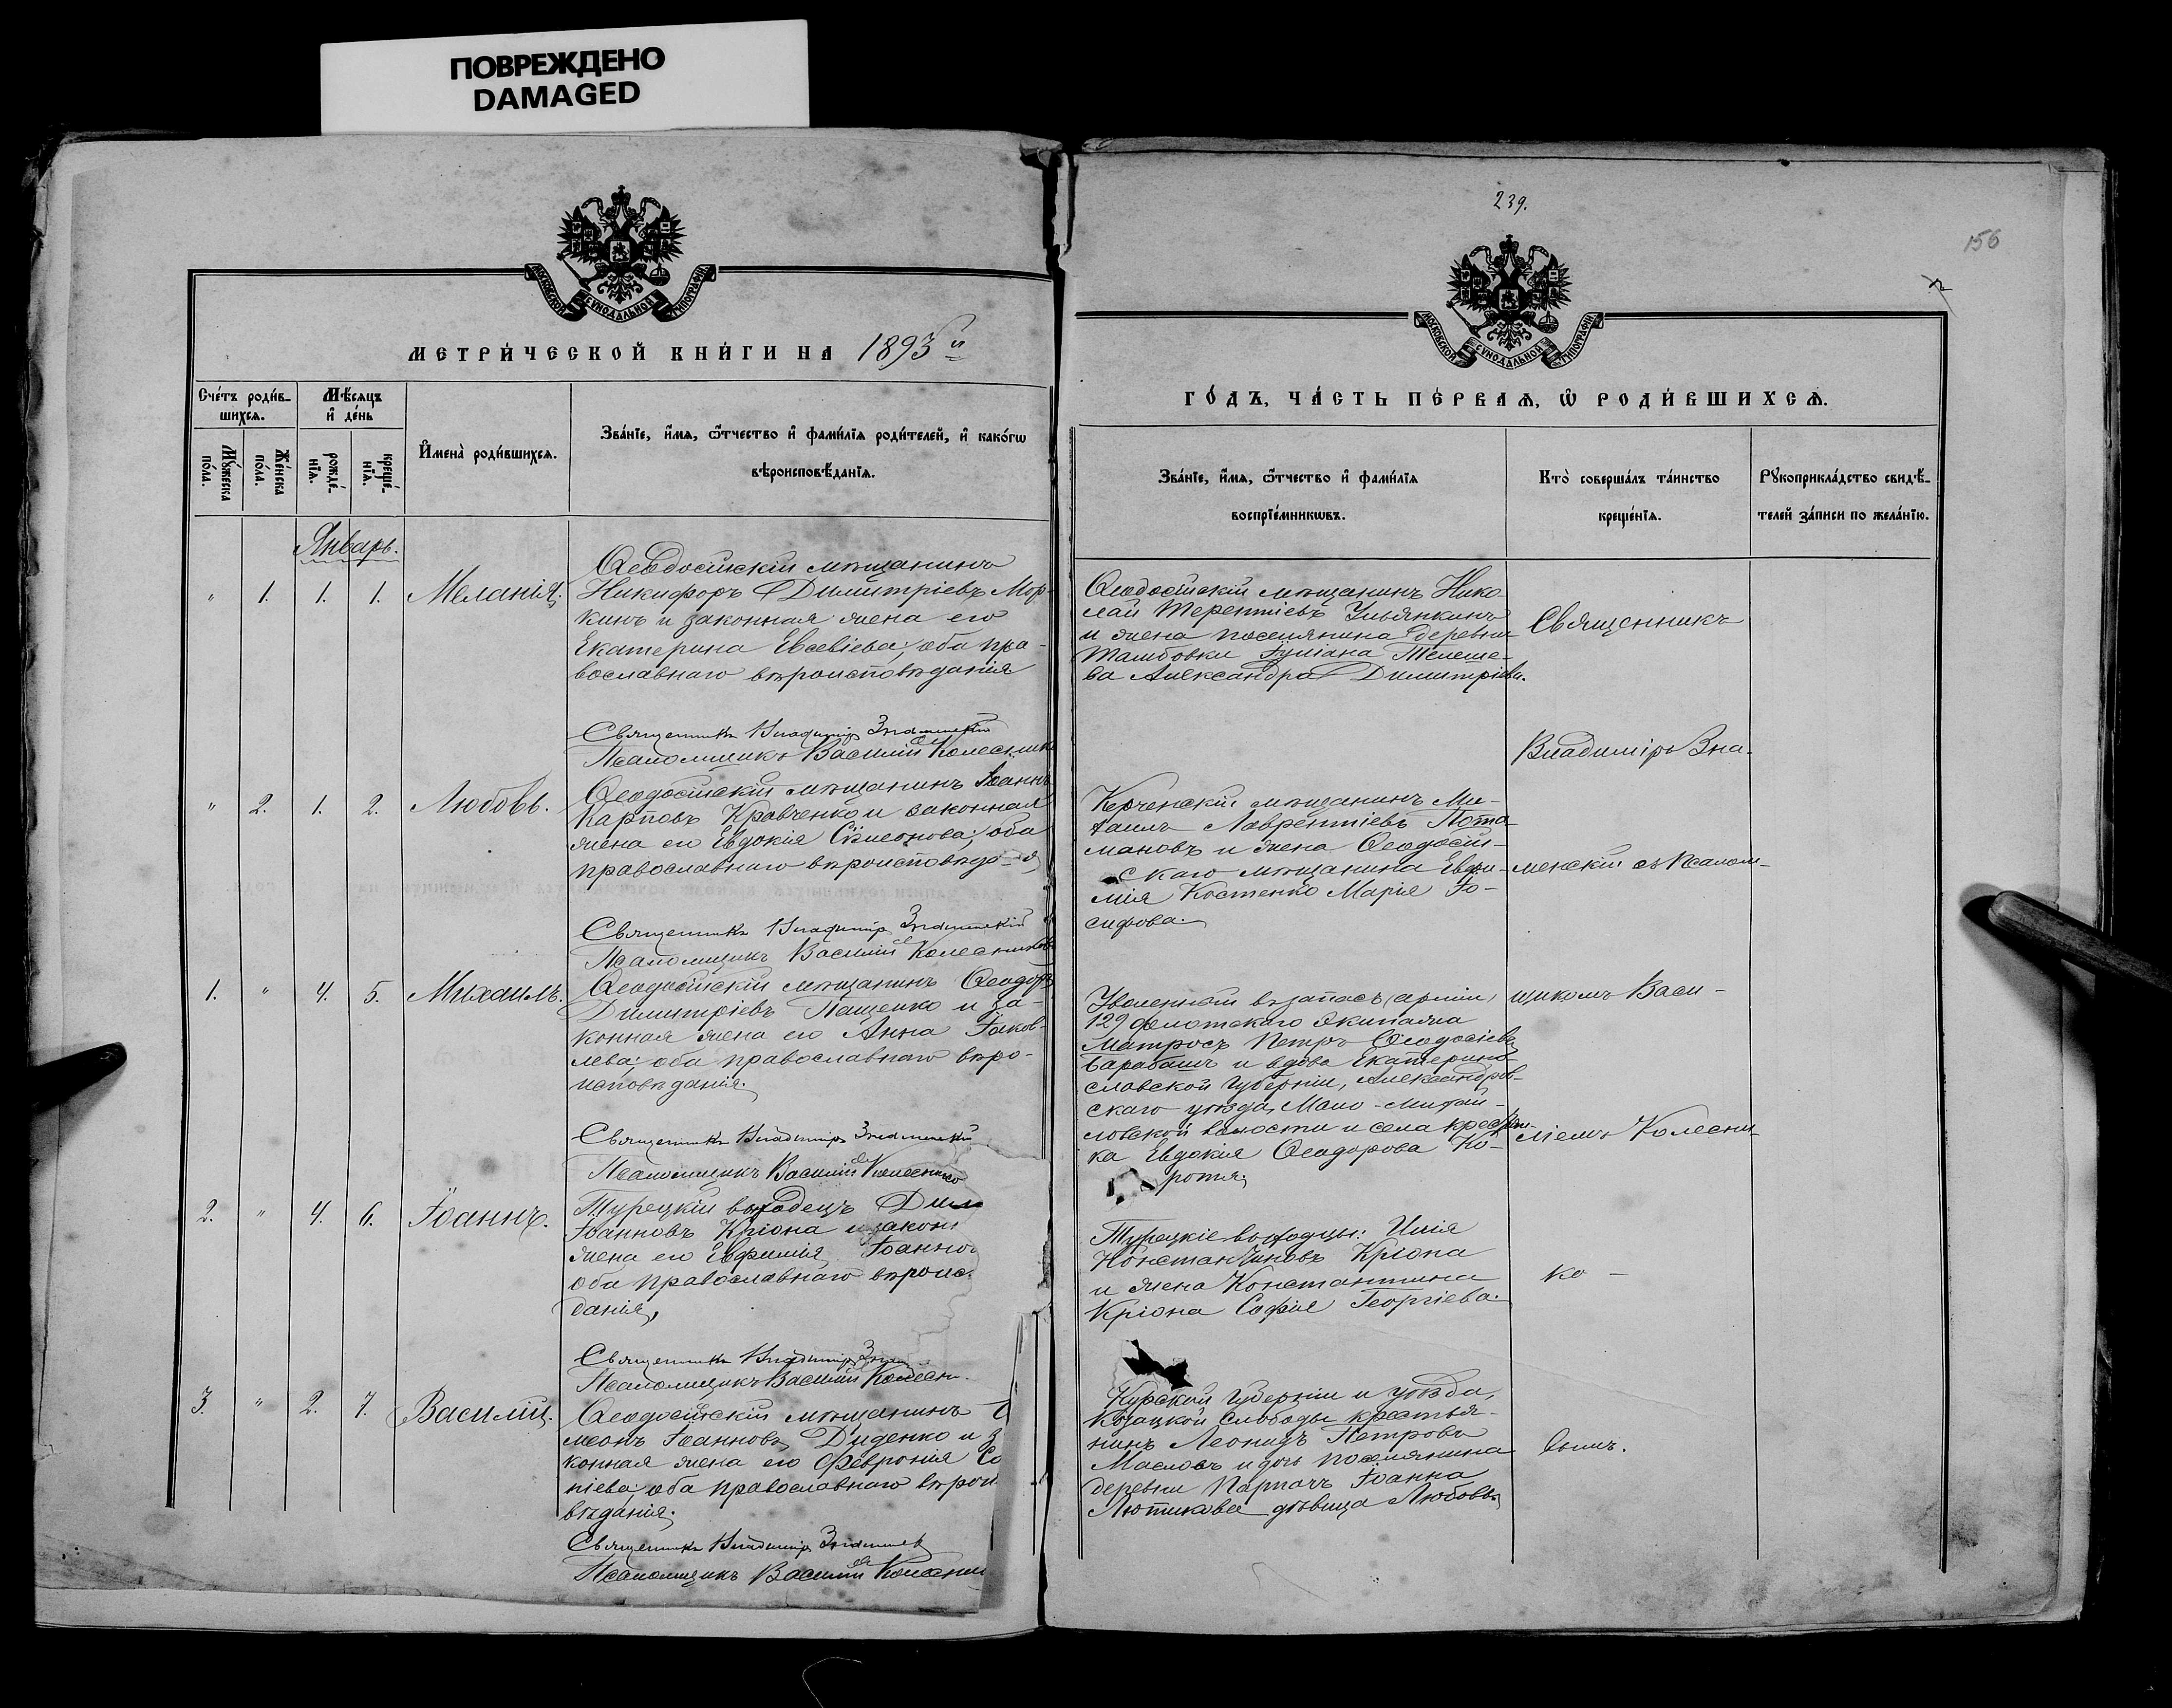 ПОВРЕЖДЕНО
DAMAGED
МОСКОВСКОЙ СѴНОДАЛЬНОЙ ТИПОГРАФІИ
МЕТРИ́ЧЕСКОЙ КНИ́ГИ НА 1893й
Сче́тъ роди́в-
шихсѧ.
Мѣ́сѧцъ
и҆ де́нь
Мꙋ́жеска
по́ла.
Же́нска
по́ла.
рожде́-
нїѧ.
креще́-
нїѧ.
И҆мена̀ роди́вшихсѧ.
Зва́нїе, и҆́мѧ, ѻ҆́тчество и҆ фами́лїѧ роди́телей, и҆ како́гѡ
вѣроисповѣ́данїѧ.
Январь.
" 1. 1. 1. Меланія.
Ѳеодосійскій мѣщанинъ
Никифоръ Димитріевъ Мор-
кинъ и законная жена его
Екатерина Евсевіева, оба пра-
вославнаго вѣроисповѣданія
Священникъ Владиміръ Знаменскій
Псаломщикъ Василій Колесник
" 2. 1. 2. Любовь.
Ѳеодосійскій мѣщанинъ Іоаннъ
Карповъ Кравченко и законная
жена его Евдокія Симеонова; оба
православнаго вѣроисповѣда я
Священникъ Владиміръ Знаменскій
Псаломщикъ Василій Колесников
1. " 4. 5. Михаилъ.
Ѳеодосійскій мѣщанинъ Ѳеодоръ
Димитріевъ Пащенко и за-
конная жена его Анна Іаков-
лева; оба православнаго вѣро-
исповѣданія.
Священникъ Владиміръ Знаменскій
Псаломщикъ Василій Колеснико
2. " 4. 6. Іоаннъ.
Турецкій выходецъ Дим
Іоанновъ Кріона и закон
жена его Евфимія Іоанно
оба православнаго вѣроис
данія,
Священникъ Владиміръ Знам
Псаломщикъ Василій Колесн
3. " 2. 7. Василій.
Ѳеодосійскій мѣщанинъ
меонъ Іоанновъ Диденко и з
конная жена его Феврония Со
ніева, оба православнаго вѣрои
вѣданія.
Священникъ Владиміръ Знаменск
Псаломщикъ Василій Колесни
239.
156
МОСКОВСКОЙ СѴНОДАЛЬНОЙ ТИПОГРАФІИ
ГО́ДЪ, ЧА́СТЬ ПЕ́РВАѦ, Ѿ РОДИ́ВШИХСѦ.
Зва́нїе, и҆́мѧ, ѻ҆́тчество и҆ фами́лїѧ
воспрїе́мникѡвъ.
Кто̀ соверша́лъ та́инство
креще́нїѧ.
Рꙋкоприкла́дство свидѣ́-
телей за́писи по жела́нїю.
Ѳеодосійскій мѣщанинъ Нико-
лай Терентіевъ Ульянкинъ
и жена поселянина деревни
Тамбовки Іуліана Телеше-
ва Александра Димитріева.
Керченскій мѣщанинъ Ми-
хаилъ Лаврентіевъ Пота-
мановъ и жена Ѳеодосій-
скаго мѣщанина Евфи-
мія Костенко Марія Іо-
сифова.
Уволенный въ запасъ арміи,
129 флотскаго экипажа
Матросъ Петръ Ѳеодосіевъ
Барабашъ и вдова Екатерино-
славской губерніи, Александров-
скаго уѣзда, Мало-Михай-
ловской волости и села крестьян-
ка Евдокія Ѳеодорова Ко-
ротя.
Турецкіе выходцы: Илія
Константиновъ Кріона
и жена Константина
Кріона Софія Георгіева.
Курской губерніи и уѣзда,
Козацкой слободы крестья-
нинъ Леонидъ Петровъ
Масловъ и дочь поселянина
деревни Парпачъ Іоанна
Лютикова дѣвица Любовь.
Священникъ
Владиміръ Зна-
менскій съ псалом-
щикомъ Васи-
ліемъ Колесни-
ко-
вымъ.